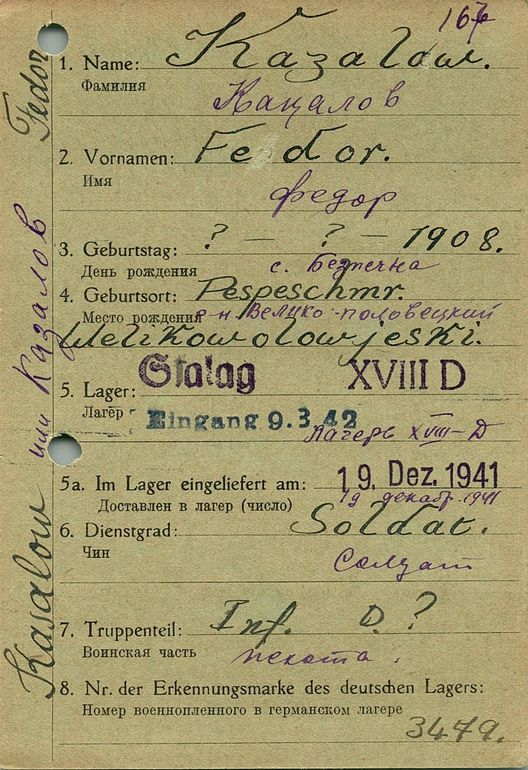 167
1. Name: Kazalow.
Фамилия
Кацалов
2. Vornamen: Feodor.
Имя
федор
3. Geburtstag: ? — ? — 1908.
День рождения с. Безпечна
4. Geburtsort: Pespeschmr.
Место рождения р-н Велико-половецкий
Welikowolowjeski.
5. Lager: Stalag XVIII D
Лагерь Eingang 9.3.42
Лагерь XVIII-D
5a. Im Lager eingeliefert am: 19. Dez. 1941
Доставлен в лагер (число) 19 декабр. 1941
6. Dienstgrad: Soldat.
Чин
Солдат
7. Truppenteil: Inf. D. ?
Воинская часть пехота.
8. Nr. der Erkennungsmarke des deutschen Lagers:
Номер военнопленного в германском лагере
3479.
Kasalow или Казалов Fedor